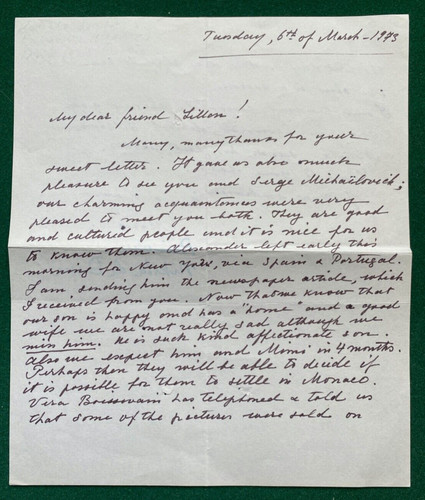 Tuesday, 6th of March - 1973
My dear friend Lillou!
Many, many thanks for your
sweet letter. It gave us also much
pleasure to see you and Serge Michaïlovich;
our charming acquaintances were very
pleased to meet you both. They are good
and cultured people and it is nice for us
to know them. Alexander left early this
morning for New York, via Spain & Portugal.
I am sending him the newspaper article, which
I received from you. Now that we know that
our son is happy and has a "home" and a good
wife we are not really sad although we
miss him. He is such kind affectionate son.
Also we expect him and Mimi in 4 months.
Perhaps then they will be able to decide if
it is possible for them to settle in Monaco.
Vera has telephoned & told us
that some of the pictures were sold on